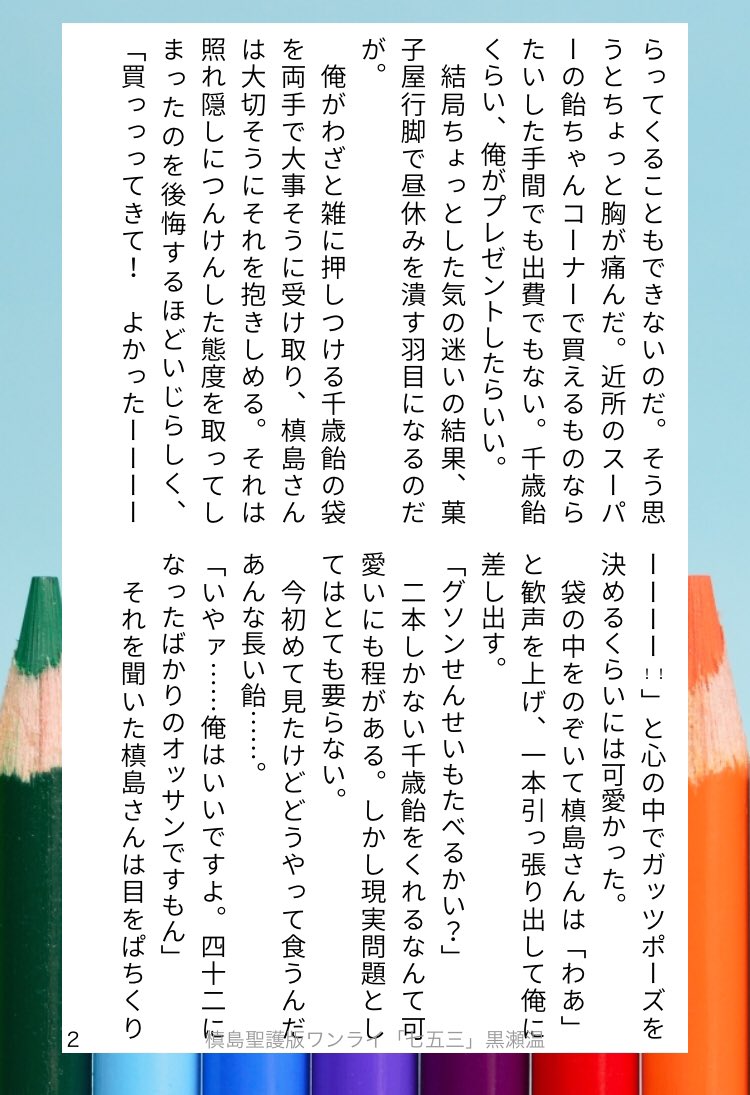 らってくることもできないのだ。そう思
うとちょっと胸が痛んだ。近所のスーパ
ーの飴ちゃんコーナーで買えるものなら
たいした手間でも出費でもない。千歳飴
くらい、俺がプレゼントしたらいい。
　結局ちょっとした気の迷いの結果、菓
子屋行脚で昼休みを潰す羽目になるのだ
が。
　俺がわざと雑に押しつける千歳飴の袋
を両手で大事そうに受け取り、槙島さん
は大切そうにそれを抱きしめる。それは
照れ隠しにつんけんした態度を取ってし
まったのを後悔するほどいじらしく、
「買っっってきて！　よかったーーーー
ーーーー!!」と心の中でガッツポーズを
決めるくらいには可愛かった。
　袋の中をのぞいて槙島さんは「わあ」
と歓声を上げ、一本引っ張り出して俺に
差し出す。
「グソンせんせいもたべるかい？」
　二本しかない千歳飴をくれるなんて可
愛いにも程がある。しかし現実問題とし
てはとても要らない。
　今初めて見たけどどうやって食うんだ
あんな長い飴……。
「いやァ……俺はいいですよ。四十二に
なったばかりのオッサンですもん」
　それを聞いた槙島さんは目をぱちくり
2
槙島聖護版ワンライ「七五三」黒瀬温